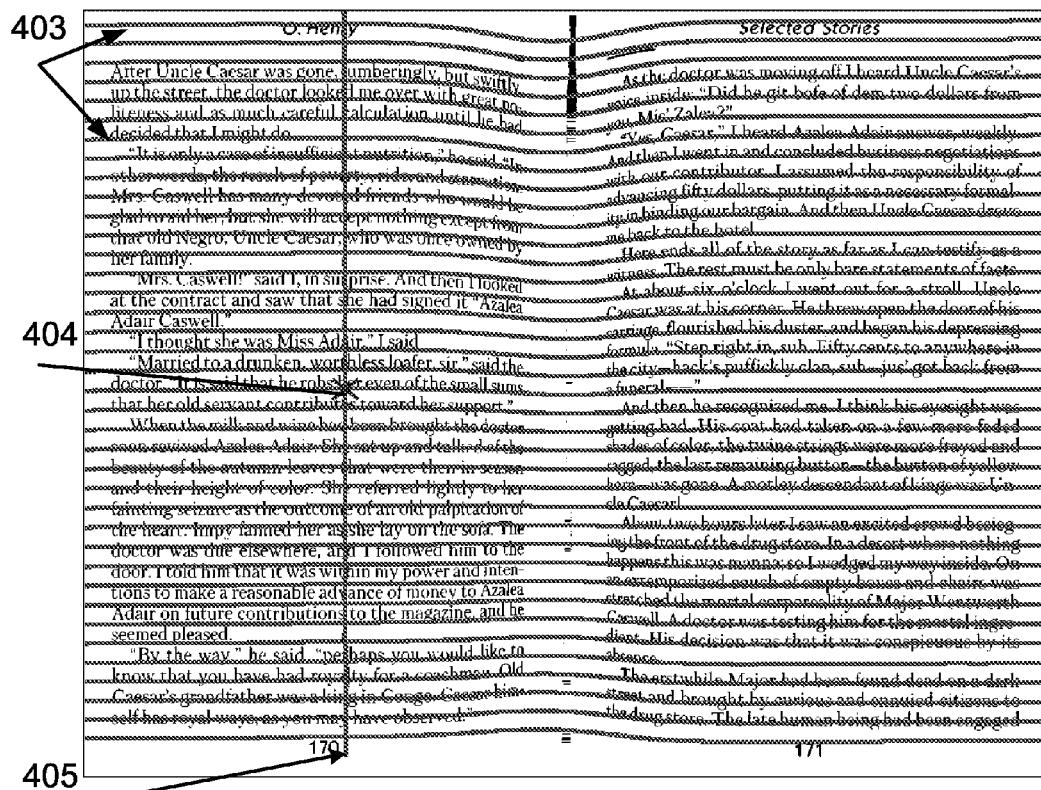 403
404
405
O. Henry
After Uncle Caesar was gone, lumberingly, but swiftly
up the street, the doctor looked me over with great po-
liteness and as much careful calculation until he had
decided that I might do.
"It is only a case of insufficient nutrition," he said. "In
other words, the result of poverty, pride and starvation.
Mrs. Caswell has many devoted friends who would be
glad to aid her, but she will accept nothing except from
that old Negro, Uncle Caesar, who was once owned by
her family."
"Mrs. Caswell!" said I, in surprise. And then I looked
at the contract and saw that she had signed it "Azalea
Adair Caswell."
"I thought she was Miss Adair," I said.
"Married to a drunken, worthless loafer, sir," said the
doctor. "It is said that he robs her even of the small sums
that her old servant contributes toward her support."
When the milk and wine had been brought the doctor
soon revived Azalea Adair. She sat up and talked of the
beauty of the autumn leaves that were then in season
and their height of color. She referred lightly to her
fainting seizure as the outcome of an old palpitation of
the heart. Impy fanned her as she lay on the sofa. The
doctor was due elsewhere, and I followed him to the
door. I told him that it was within my power and inten-
tions to make a reasonable advance of money to Azalea
Adair on future contributions to the magazine, and he
seemed pleased.
"By the way," he said, "perhaps you would like to
know that you have had royalty for a coachman. Old
Caesar's grandfather was a king in Congo. Caesar him-
self has royal ways, as you may have observed."
170
Selected Stories
As the doctor was moving off I heard Uncle Caesar's
voice inside: "Did he git bofe of dem two dollars from
you, Mis' Zalea?"
"Yes, Caesar," I heard Azalea Adair answer weakly.
And then I went in and concluded business negotiations
with our contributor. I assumed the responsibility of
advancing fifty dollars, putting it as a necessary formal-
ity in binding our bargain. And then Uncle Caesar drove
me back to the hotel.
Here ends all of the story as far as I can testify as a
witness. The rest must be only bare statements of facts.
At about six o'clock I went out for a stroll. Uncle
Caesar was at his corner. He threw open the door of his
carriage, flourished his duster, and began his depressing
formula: "Step right in, suh. Fifty cents to anywhere in
the city—hack's puffickly clean, suh—jus' got back from
a funeral——"
And then he recognized me. I think his eyesight was
getting bad. His coat had taken on a few more faded
shades of color, the twine strings were more frayed and
ragged, the last remaining button—the button of yellow
horn—was gone. A motley descendant of kings was Un-
cle Caesar!
About two hours later I saw an excited crowd besieg-
ing the front of the drug store. In a desert where nothing
happens this was manna; so I wedged my way inside. On
an extemporized couch of empty boxes and chairs was
stretched the mortal corporeality of Major Wentworth
Caswell. A doctor was testing him for the mortal ingre-
dient. His decision was that it was conspicuous by its
absence.
The erstwhile Major had been found dead on a dark
street and brought by curious and ennuied citizens to
the drug store. The late human being had been engaged
171